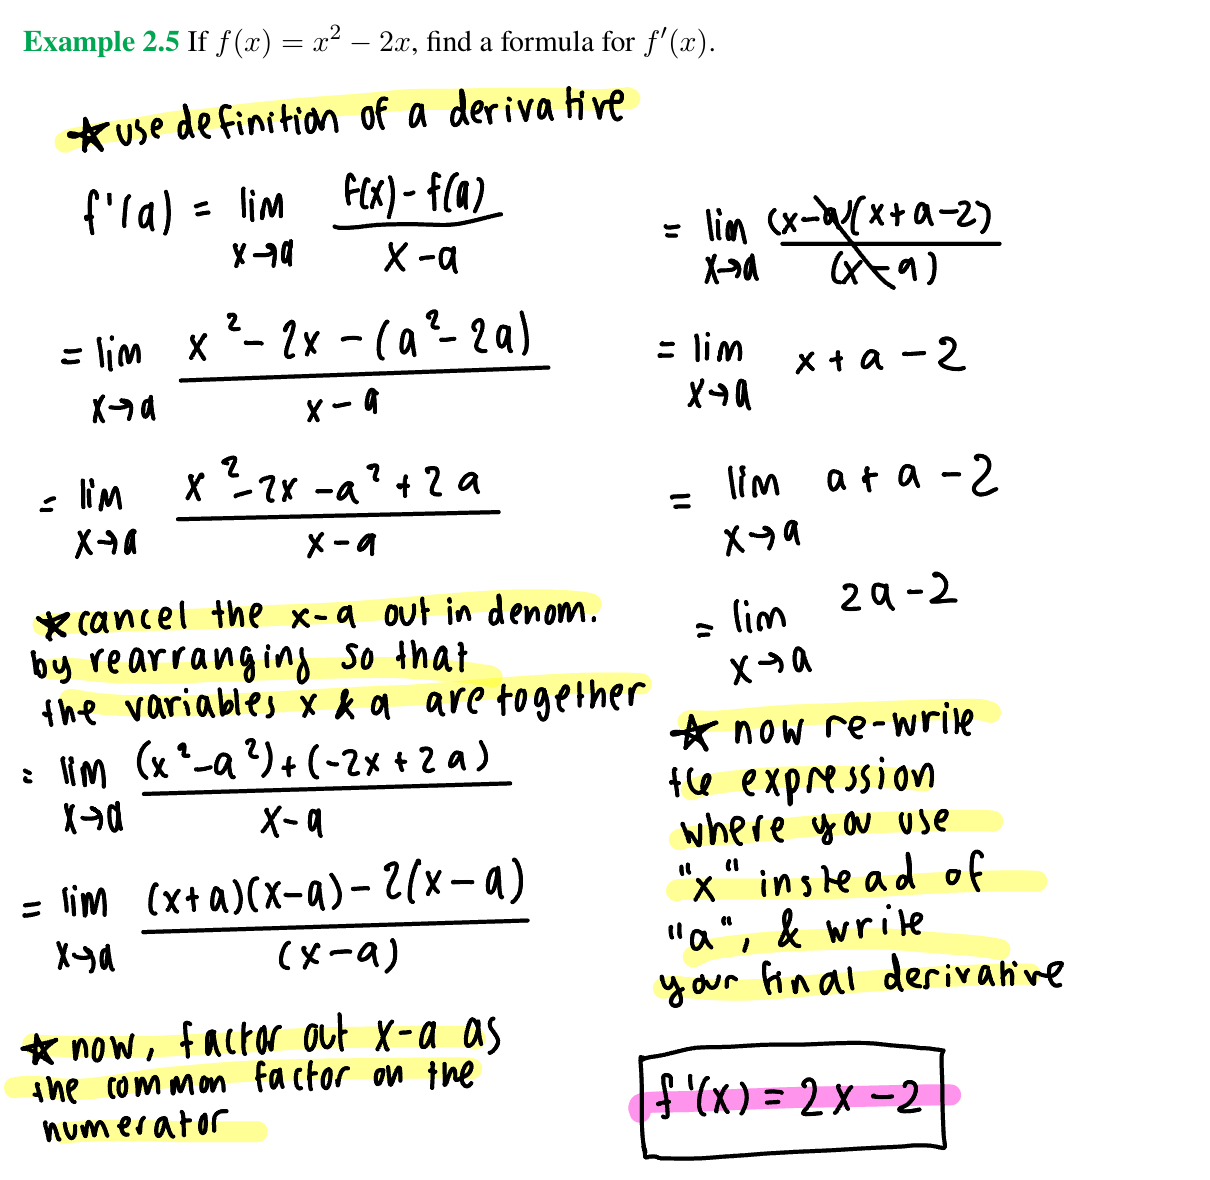 Example 2.5 If f(x) = x² − 2x, find a formula for f′(x).
★ use definition of a derivative
f'(a) = lim x→a f(x) - f(a) / x - a
= lim x→a x² - 2x - (a² - 2a) / x - a
= lim x→a x² - 2x - a² + 2a / x - a
★ cancel the x-a out in denom.
by rearranging so that
the variables x & a are together
= lim x→a (x² - a²) + (-2x + 2a) / x - a
= lim x→a (x+a)(x-a) - 2(x-a) / (x-a)
★ now, factor out x-a as
the common factor on the
numerator
= lim x→a (x-a)(x+a-2) / (x-a)
= lim x→a x + a - 2
= lim x→a a + a - 2
= lim x→a 2a - 2
★ now re-write
the expression
where you use
"x" instead of
"a", & write
your final derivative
f'(x) = 2x - 2